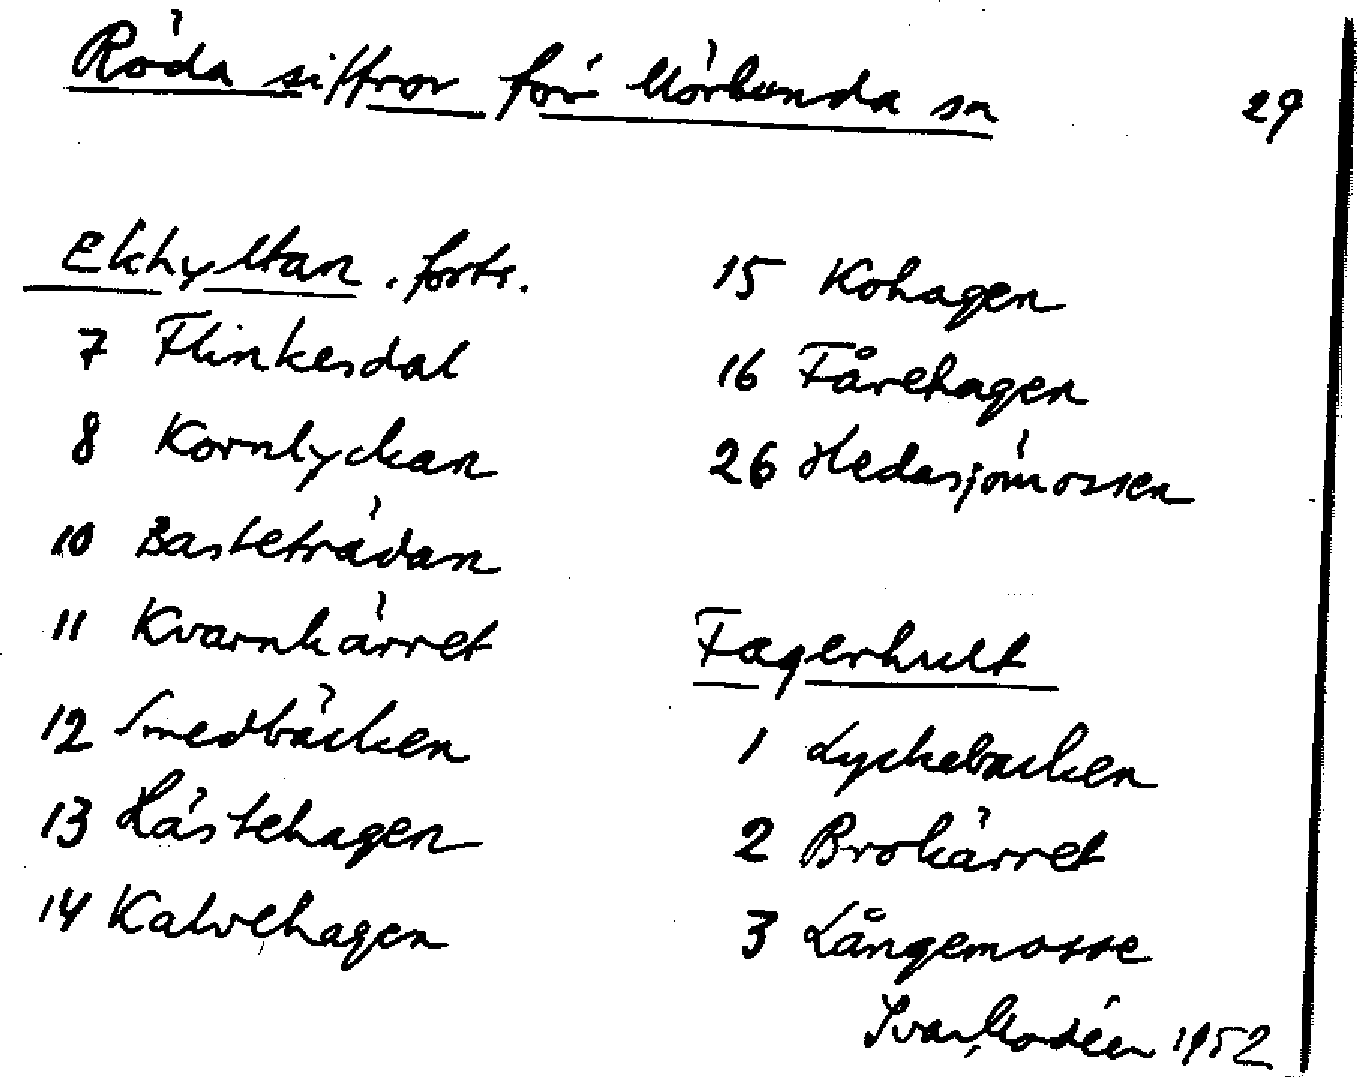 Röda siffror för Mörlunda sn
29
Ekhyltan. forts.
7 Flinkesdal
8 Kornlyckan
10 Basteträdan
11 Kvarnkärret
12 Smedbäcken
13 Hästehagen
14 Kalvehagen
15 Kohagen
16 Fårehagen
26 Hedasjömossen
Fagerhult
1 Lyckebacken
2 Brokärret
3 Långemosse
Ivar Modéer 1952